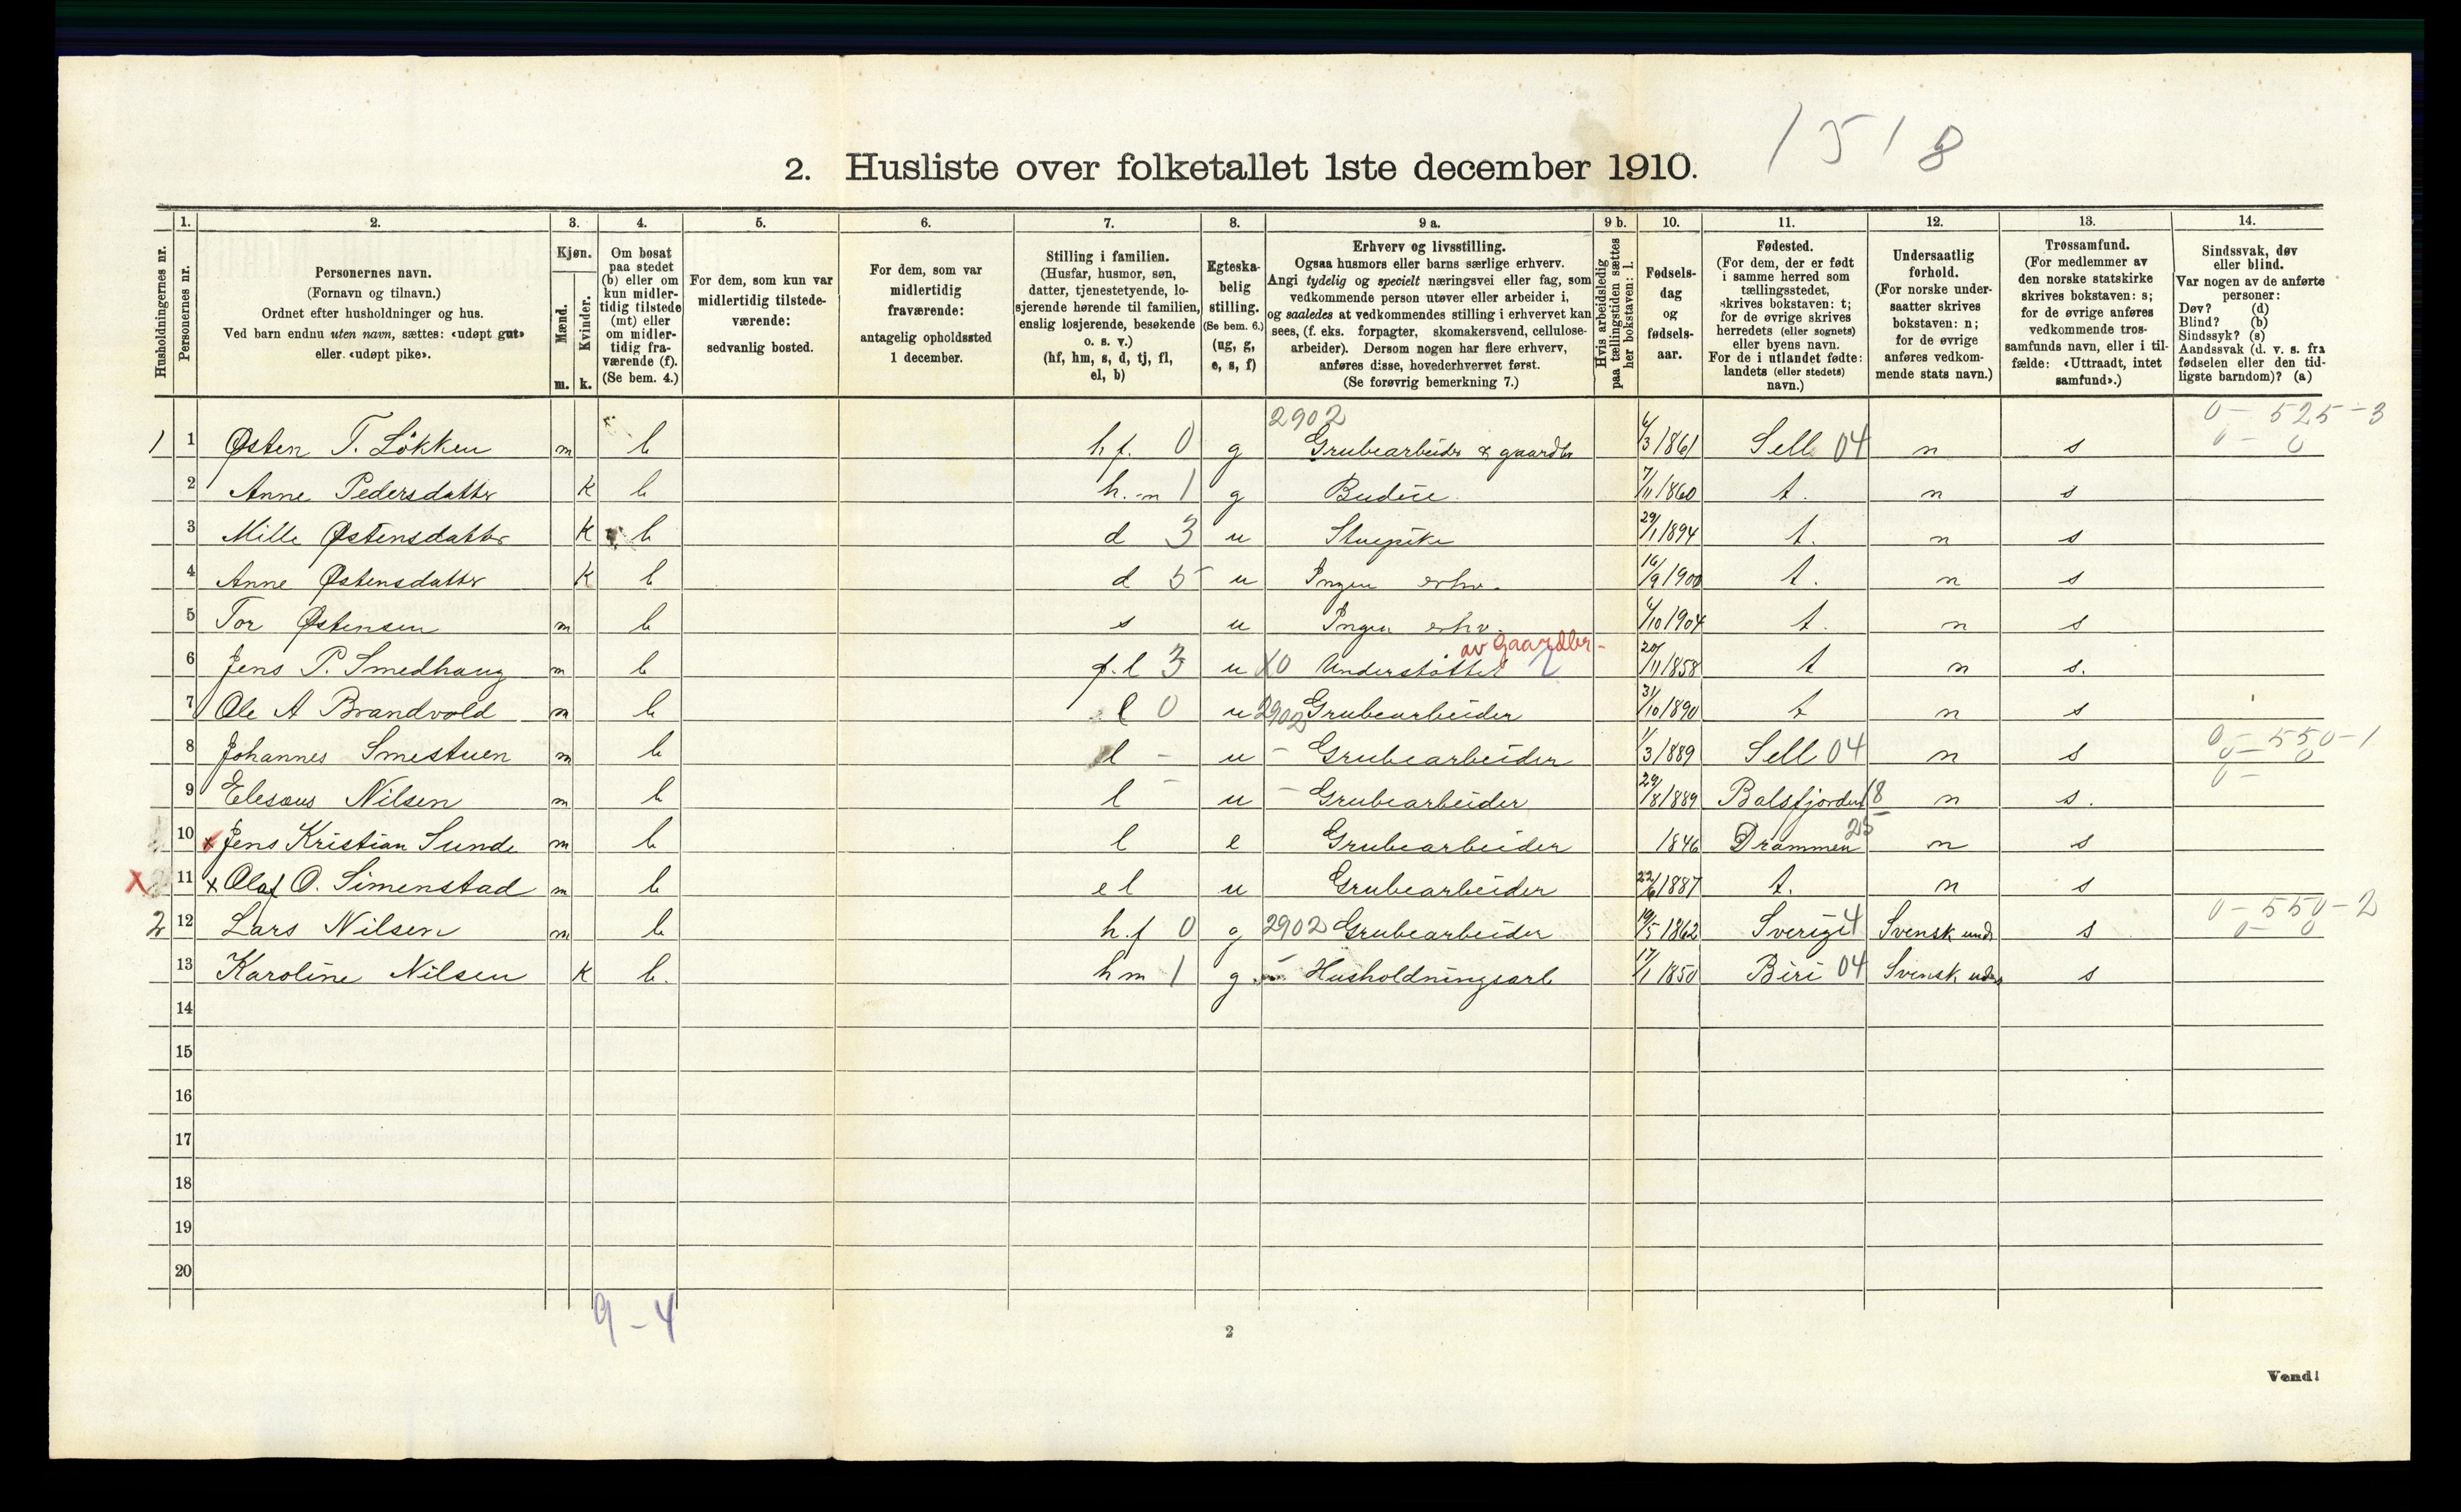 1518
2. Husliste over folketallet 1ste december 1910.
Husholdningernes nr.
1. Personernes nr.
2. Personernes navn.
(Fornavn og tilnavn.)
Ordnet efter husholdninger og hus.
Ved barn endnu uten navn, sættes: «udøpt gut»
eller «udøpt pike».
3. Kjøn.
Mænd. Kvinder.
m. k.
4. Om bosat
paa stedet
(b) eller om
kun midler-
tidig tilstede
(mt) eller
om midler-
tidig fra-
værende (f).
(Se bem. 4.)
5. For dem, som kun var
midlertidig tilstede-
værende:
sedvanlig bosted.
6. For dem, som var
midlertidig
fraværende:
antagelig opholdssted
1 december.
7. Stilling i familien.
(Husfar, husmor, søn,
datter, tjenestetyende, lo-
sjerende hørende til familien,
enslig losjerende, besøkende
o. s. v.)
(hf, hm, s, d, tj, fl,
el, b)
8. Egteska-
belig
stilling.
(Se bem. 6.)
(ug, g,
e, s, f)
9 a. Erhverv og livsstilling.
Ogsaa husmors eller barns særlige erhverv.
Angi tydelig og specielt næringsvei eller fag, som
vedkommende person utøver eller arbeider i,
og saaledes at vedkommendes stilling i erhvervet kan
sees, (f. eks. forpagter, skomakersvend, cellulose-
arbeider). Dersom nogen har flere erhverv,
anføres disse, hovederhvervet først.
(Se forøvrig bemerkning 7.)
9 b. Hvis arbeidsledig
paa tællingstiden sættes
her bokstaven: l.
10. Fødsels-
dag
og
fødsels-
aar.
11. Fødested.
(For dem, der er født
i samme herred som
tællingsstedet,
skrives bokstaven: t;
for de øvrige skrives
herredets (eller sognets)
eller byens navn.
For de i utlandet fødte:
landets (eller stedets)
navn.)
12. Undersaatlig
forhold.
(For norske under-
saatter skrives
bokstaven: n;
for de øvrige
anføres vedkom-
mende stats navn.)
13. Trossamfund.
(For medlemmer av
den norske statskirke
skrives bokstaven: s;
for de øvrige anføres
vedkommende tros-
samfunds navn, eller i til-
fælde: «Uttraadt, intet
samfund».)
14. Sindssvak, døv
eller blind.
Var nogen av de anførte
personer:
Døv? (d)
Blind? (b)
Sindssyk? (s)
Aandssvak (d. v. s. fra
fødselen eller den tid-
ligste barndom)? (a)
2902 0-525-3
1 1 Østen T. Løkken m b hf. 0 g Grubearbeider & gaardbr 6/3 1861 Sell 04 n s 0-0
2 Anne Pedersdatter k b h.m 1 g Budeie 7/11 1860 t. n s
3 Mille Østensdatter k b d 3 u Stuepike 29/1 1894 t. n s
4 Anne Østensdatter k b d 5 u Ingen erhv. 16/9 1900 t. n s
5 Tor Østensen m b s u Ingen erhv. 6/10 1904 t. n s
av Gaardbr-
6 Jens P. Smedhaug m b f.l 3 u X0 Understøttet 2 20/11 1858 t n s.
7 Ole A Brandvold m b l 0 u 2902 Grubearbeider 31/10 1890 t n s
8 Johannes Smestuen m b l - u - Grubearbeider 1/3 1889 Sell 04 n s 0-550-1
0-0
9 Elesæus Nilsen m b l - u - Grubearbeider 29/8 1889 Balsfjorden 18 n s. 0-
10 x Jens Kristian Sunde m b l e Grubearbeider 1846 Drammen 25 n s
X 11 x Olaf O. Simenstad m b el u Grubearbeider 22/6 1887 t. n s
0-550-2
2 12 Lars Nilsen m b h.f 0 g 2902 Grubearbeider 19/5 1862 Sverige 4 Svensk und s 0-0
13 Karoline Nilsen k b. hm 1 g. - Husholdningsarb 17/1 1850 Biri 04 Svensk und s
14
15
16
17
18
19
20
9-4
2
Vend!